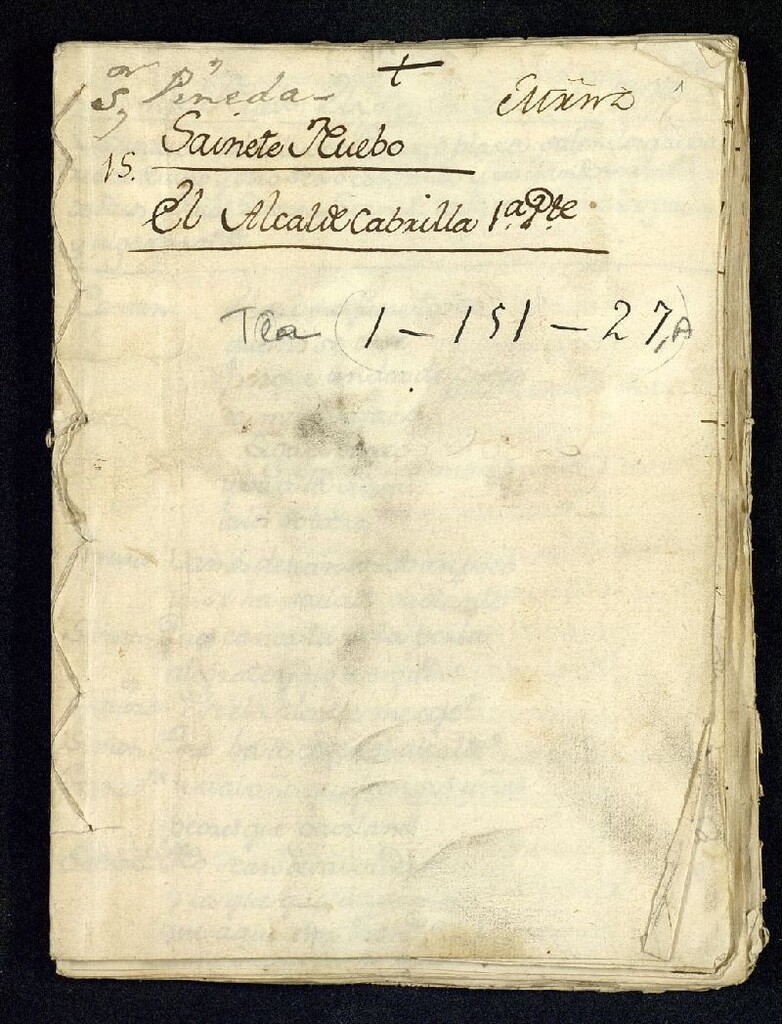 +
S.or Pineda
Sainete Nuebo
15.
El Alcalde Cabrilla 1.a P.te
Tea (1-151-27, A)